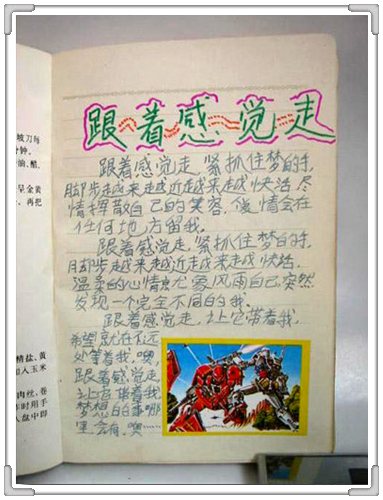 坡刀每
钟。
油、醋、
呈金黄
、再把
精盐、黄
加入玉米
肉丝、卷
时用手
盘中即
跟着感觉走
跟着感觉走,紧抓住梦的手,
脚步越来越近越来越快活,尽
情挥散自己的笑容,爱情会在
任何地方留我。
跟着感觉走,紧抓住梦的手,
脚步越来越近越来越快活.
温柔的心情尤象风雨自己突然
发现一个完全不同的我.
跟着感觉走,让它带着我,
希望就在不远
处等着我,噢,
跟着感觉走,
让它带着我
梦想的事哪
里会有,噢